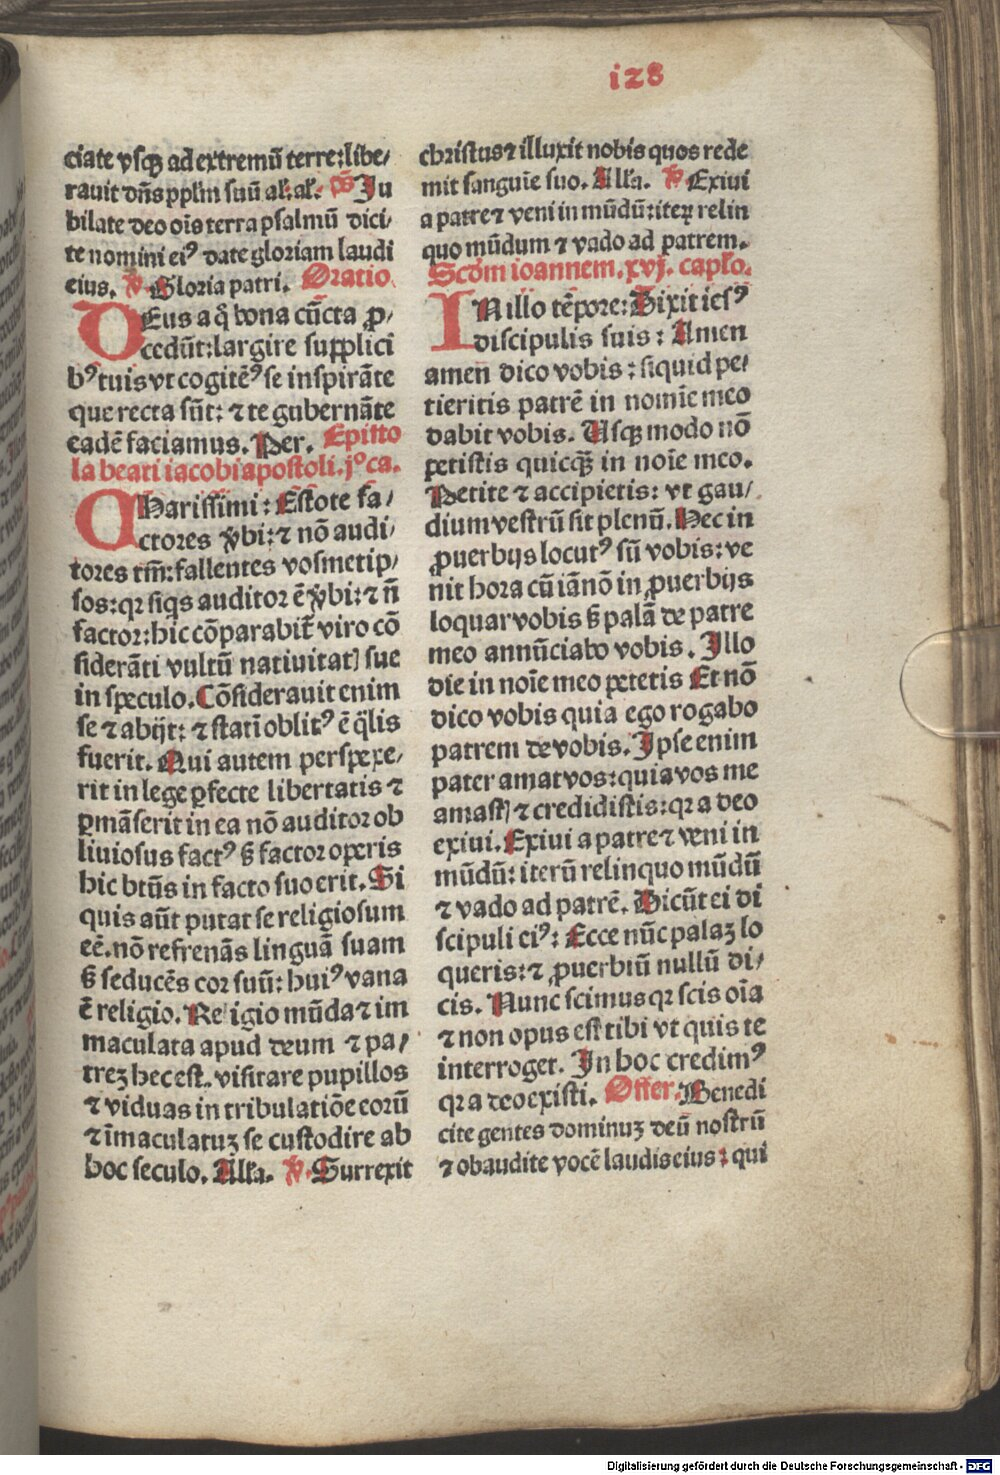 i28
ciate vsqꝫ ad extremū terre: libe/
rauit dn̄s ppl̄m suū al̓. al̓. Ps̄ Ju
bilate deo oīs terra psalmū dici/
te nomini eiꝰ date gloriam laudi
eius. ℣ Gloria patri. Oratio.
DEus a q̄ bona cūcta ꝓ/
cedūt: largire supplici
bꝰ tuis vt cogitēꝰ te inspirāte
que recta sūt: ⁊ te gubernāte
eadē faciamus. Per. Episto
la beati iacobi apostoli. jº ca.
CHarissimi: Estote fa/
ctores v̾bi: ⁊ nō audi/
tores tm̄: fallentes vosmetip/
sos: qꝛ siqs auditor ē v̾bi: ⁊ n̄
factor: hic cōparabit̄ viro cō
siderāti vultū natiuitatꝭ sue
in speculo. Cōsiderauit enim
se ⁊ abijt: ⁊ statī oblitꝰ ē q̄lis
fuerit. Qui autem perspexe/
rit in lege ꝑfecte libertatis ⁊
ꝑmāserit in ea nō auditor ob
liuiosus factꝰ sꝫ factor operis
hic btūs in facto suo erit. Si
quis aūt putat se religiosum
eē. nō refrenās linguā suam
sꝫ seducēs cor suū: huiꝰ vana
ē religio. Religio mūda ⁊ im
maculata apud deum ⁊ pa/
treꝫ hec est. visitare pupillos
⁊ viduas in tribulatiōe eorū
⁊ īmaculatuꝫ se custodire ab
hoc seculo. Alla. ℣. Surrexit
christus ⁊ illuxit nobis quos rede
mit sanguīe suo. Alla. ℣ Exiui
a patre ⁊ veni in mūdū: iteꝝ relin
quo mūdum ⁊ vado ad patrem.
Scd̄m ioannem. xvj. capło.
IN illo tēpore: Dixit iesꝰ
discipulis suis: Amen
amen dico vobis: siquid pe/
tieritis patrē in nomīe meo
dabit vobis. Usqꝫ modo nō
petistis quicqꝫ̄ in noīe meo.
Petite ⁊ accipietis: vt gau/
dium vestrū sit plenū. Hec in
ꝓuerbijs locutꝰ sū vobis: ve
nit hora cū iā nō in ꝓuerbijs
loquar vobis sꝫ palā de patre
meo annūciabo vobis. Illo
die in noīe meo petetis Et nō
dico vobis quia ego rogabo
patrem de vobis. Ipse enim
pater amat vos: quia vos me
amastꝭ ⁊ credidistis: qꝛ a deo
exiui. Exiui a patre ⁊ veni in
mūdū: iterū relinquo mūdū
⁊ vado ad patrē. Dicūt ei di
scipuli eiꝰ: Ecce nūc palaꝫ lo
queris: ⁊ ꝓuerbiū nullū di/
cis. Nunc scimus qꝛ scis oīa
⁊ non opus est tibi vt quis te
interroget. In hoc credimꝰ
qꝛ a deo existi. Offer. Benedi
cite gentes dominuꝫ deū nostrū
⁊ obaudite vocē laudis eius: qui
Digitalisierung gefördert durch die Deutsche Forschungsgemeinschaft - DFG